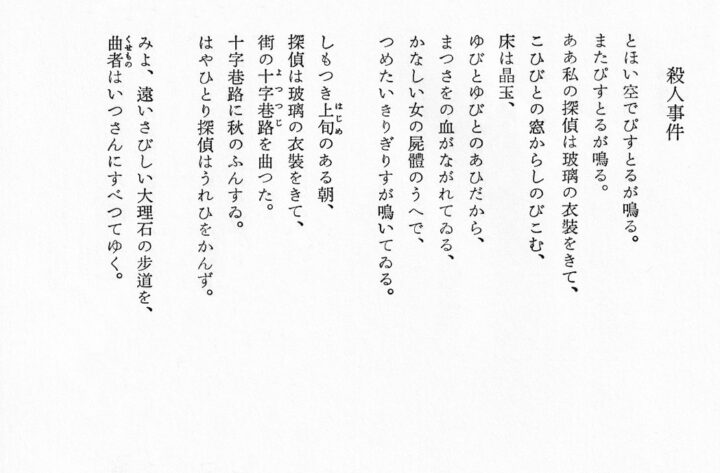 殺人事件
とほい空でぴすとるが鳴る。
またぴすとるが鳴る。
ああ私の探偵は玻璃の衣裝をきて、
こひびとの窓からしのびこむ、
床は晶玉、
ゆびとゆびとのあひだから、
まつさをの血がながれてゐる、
かなしい女の屍體のうへで、
つめたいきりぎりすが鳴いてゐる。
しもつき上旬のある朝、
はじめ
探偵は玻璃の衣裝をきて、
街の十字巷路を曲つた。
よつつじ
十字巷路に秋のふんすゐ。
はやひとり探偵はうれひをかんず。
みよ、遠いさびしい大理石の步道を、
曲者はいつさんにすべつてゆく。
くせもの